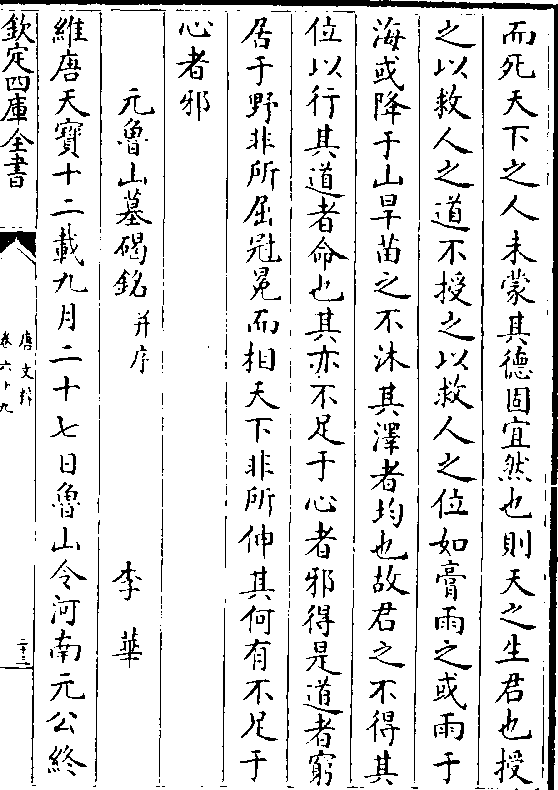 而死天下之人未蒙其德固宜然也則天之生君也授
之以救人之道不授之以救人之位如膏雨之或雨于
海或降于山旱苗之不沐其澤者均也故君之不得其
位以行其道者命也其亦不足于心者邪得是道者窮
居于野非所屈冠冕而相天下非所伸其何有不足于
心者邪
元魯山墓碣銘并序 李華
維唐天寶十二載九月二十七日魯山令河南元公終
欽定四庫全書
唐文粹
卷六十九
二十三